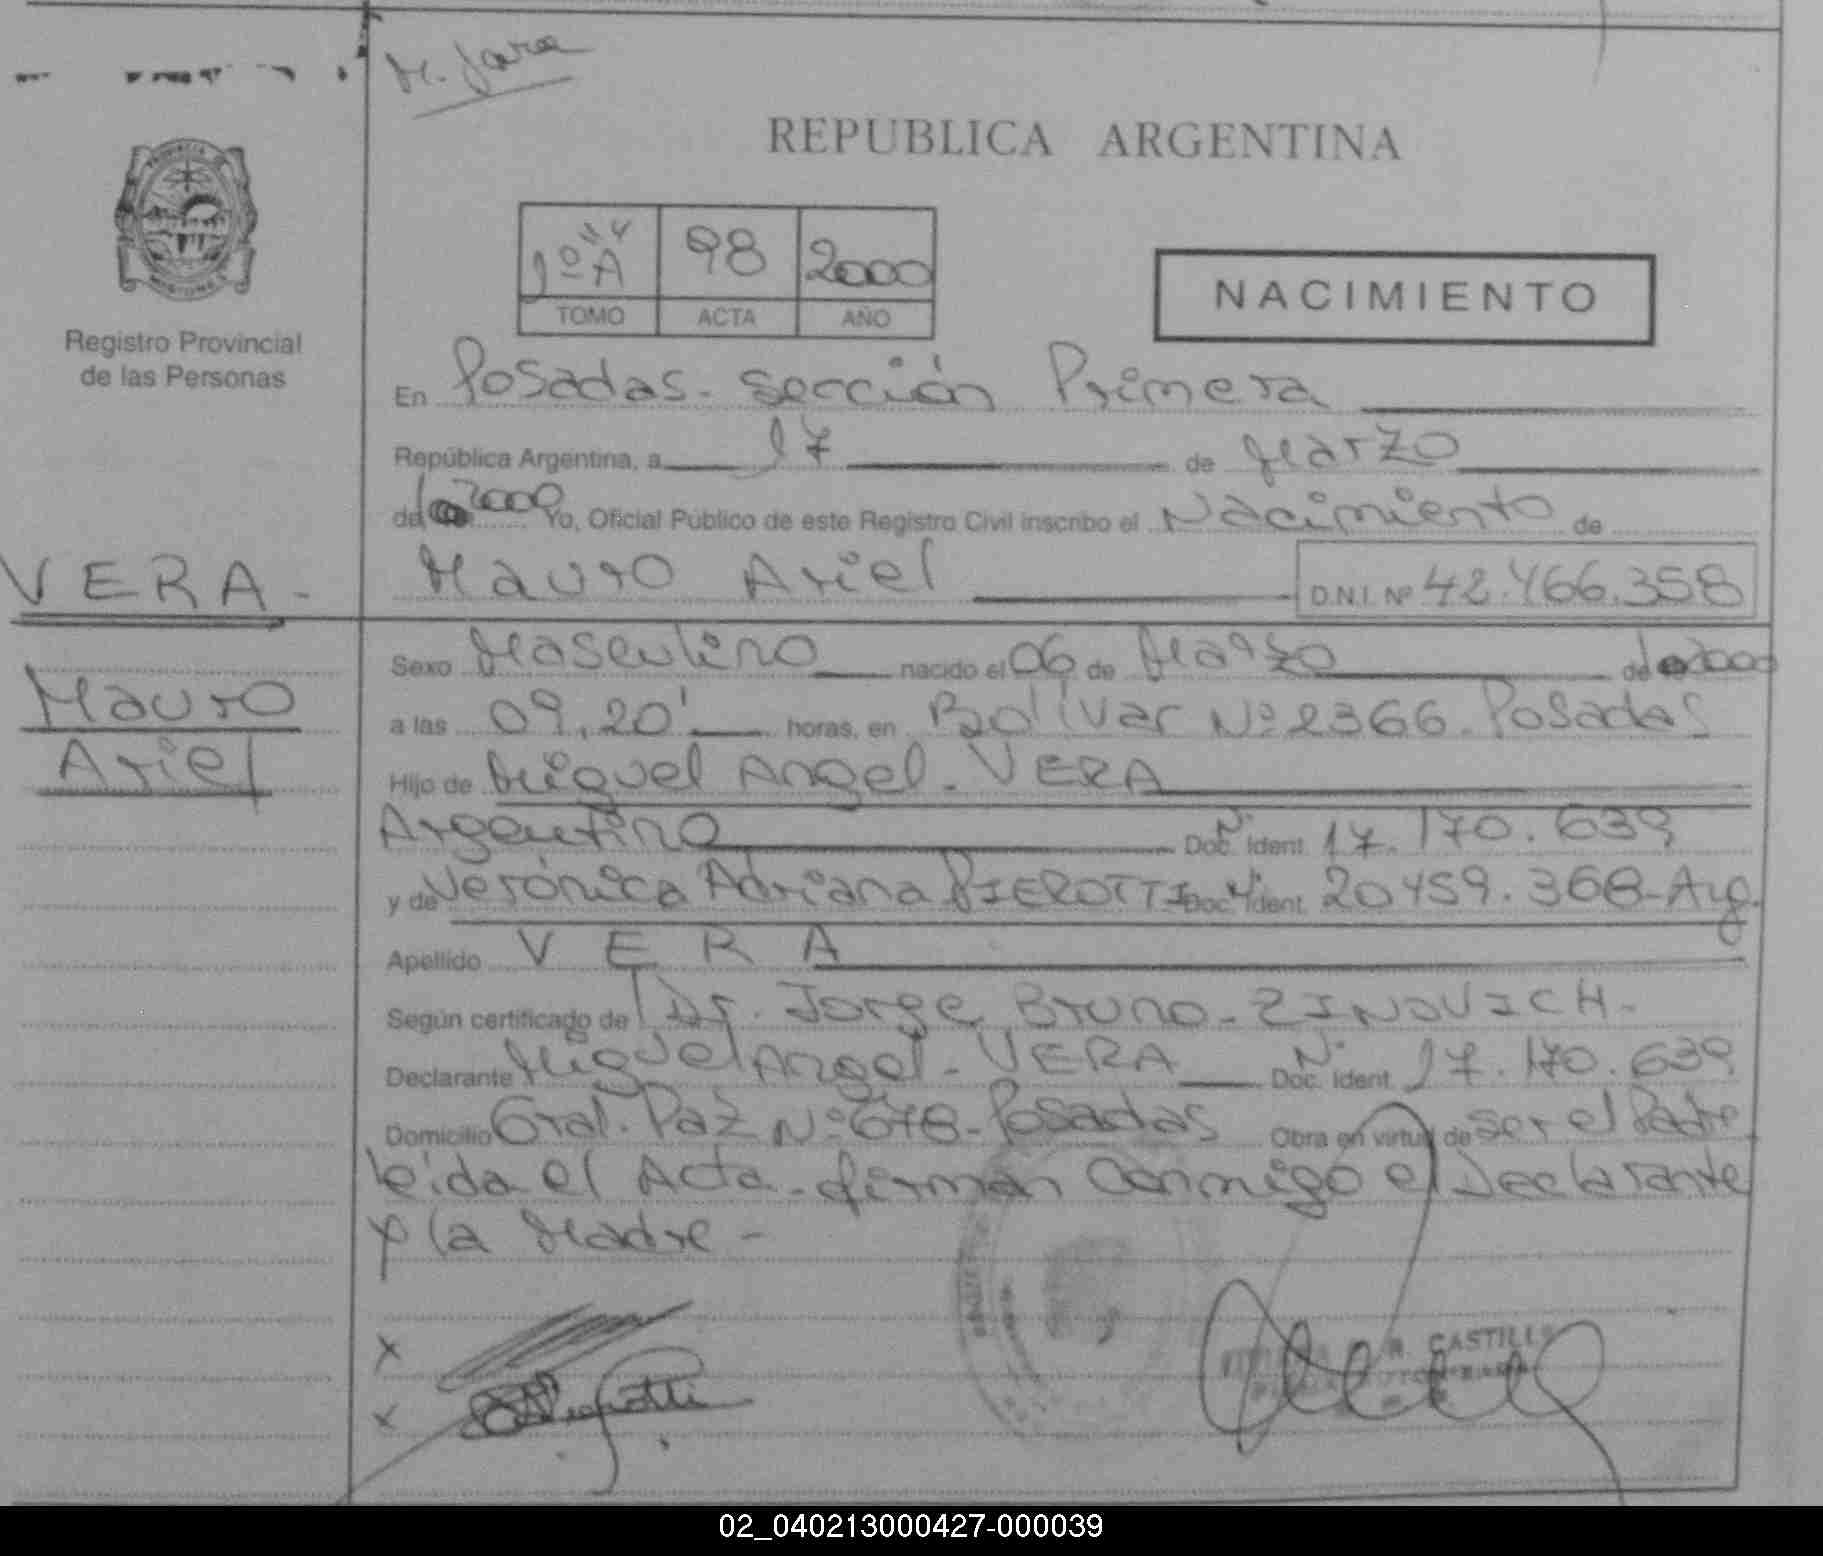 M. Jara
REPUBLICA ARGENTINA
1º A 98 2000
TOMO ACTA AÑO
NACIMIENTO
Registro Provincial
de las Personas
En Posadas - Sección Primera
República Argentina, a 17 de Marzo
de 2000 Yo, Oficial Público de este Registro Civil inscribo el Nacimiento de
VERA -
Mauro Ariel D.N.I. Nº 42.466.358
Sexo Masculino nacido el 06 de Marzo de 2000
Mauro
Ariel
a las 09,20' horas, en Bolívar Nº 2366. Posadas
Hijo de Miguel Angel - VERA
Argentino Doc. Ident. Nº 17.170.639
y de Verónica Adriana PIEROTTI Doc. Ident. 20459.368-Arg.
Apellido VERA
Según certificado de Dr. Jorge Bruno - ZINOVICH -
Declarante Miguel Angel - VERA Doc. Ident. Nº 17.170.639
Domicilio Gral. Paz Nº 678 - Posadas Obra en virtud de ser el Padre
leida el Acta - firman conmigo el Declarante
y la Madre -
X
R. CASTILLO
X
02_040213000427-000039